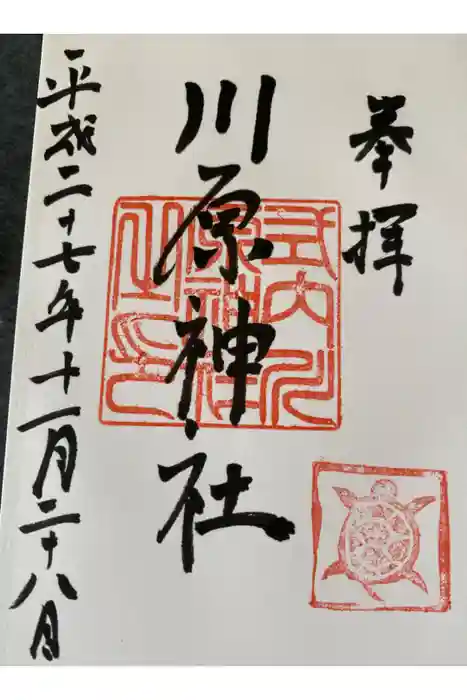 奉拝
川原神社
式内川
原神社
之印
平成二十七年十一月二十八日